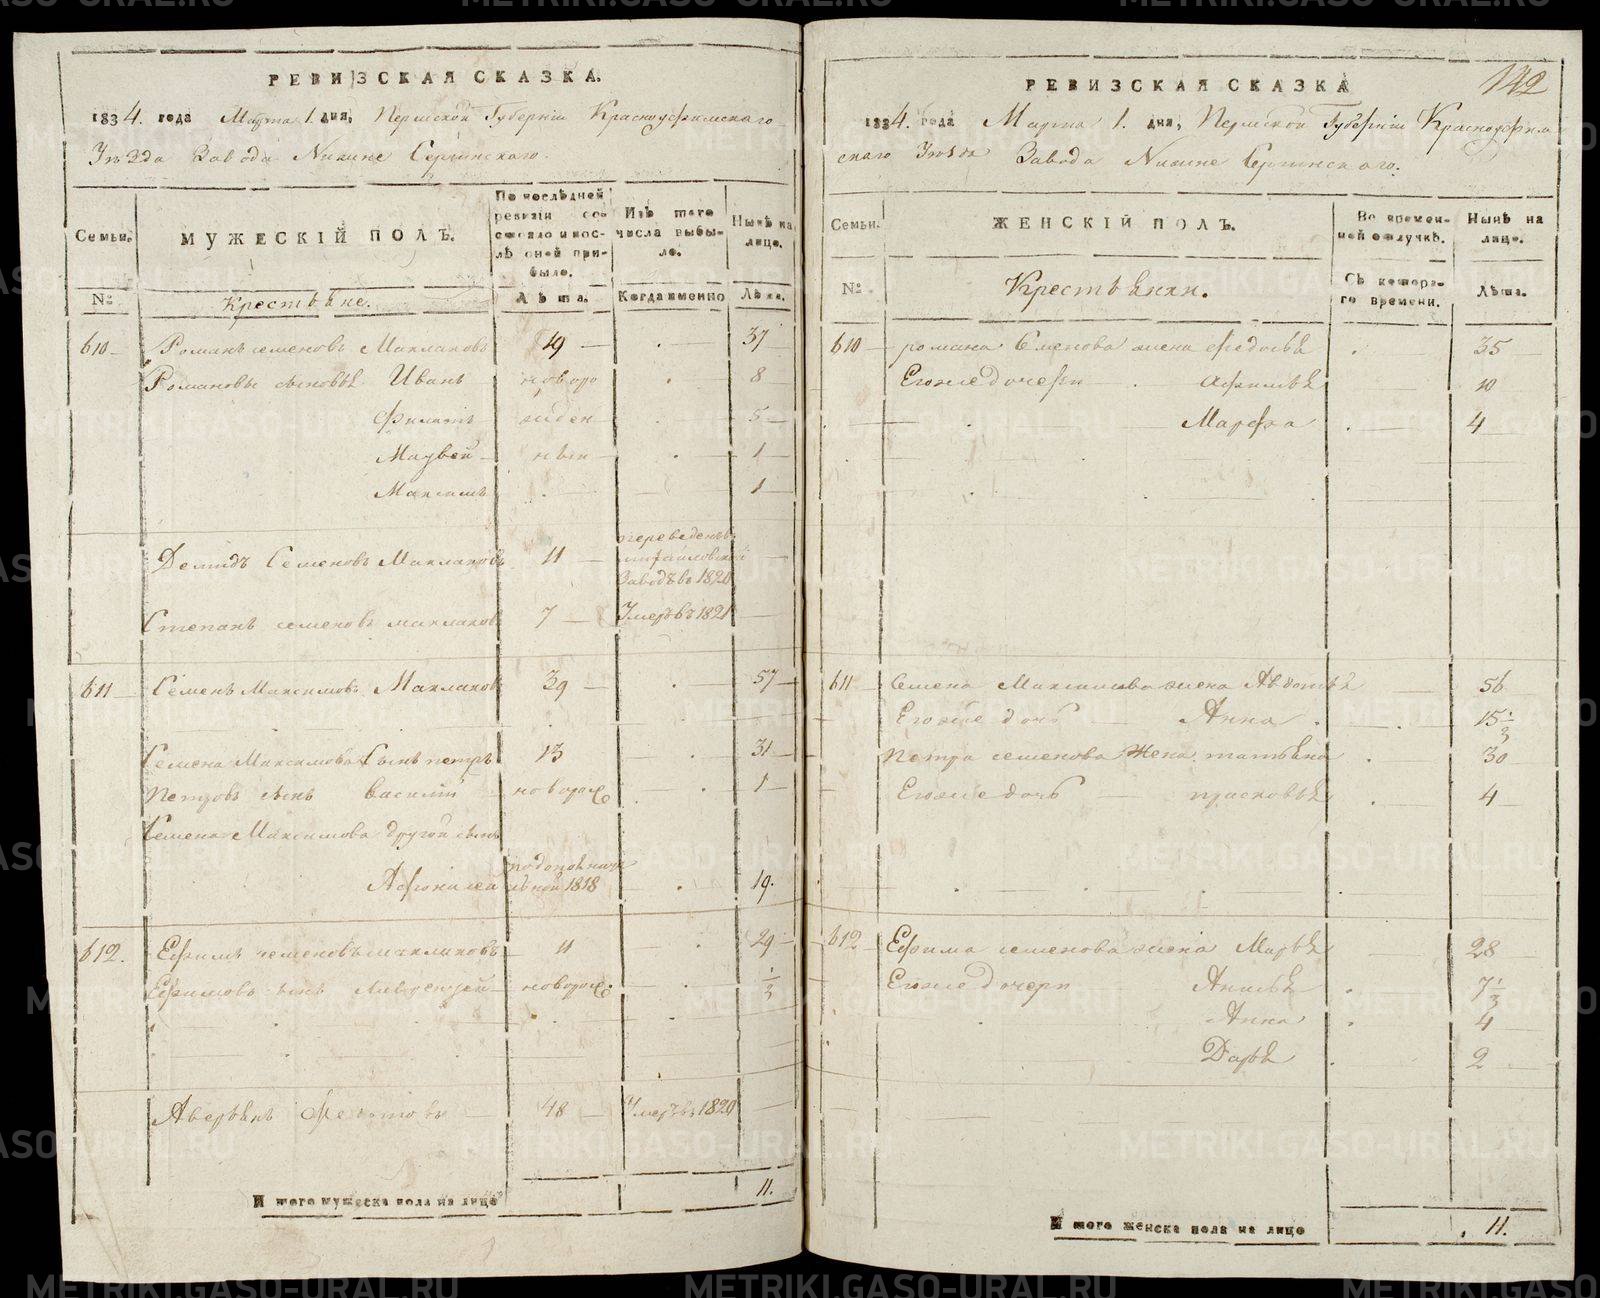 РЕВИЗСКАЯ СКАЗКА.
1834. года Марта 1. дня, Пермской Губернiи Красноуфимскаго
Уѣзда Завода Нижне Сергинскаго.
Семьи.
МУЖЕСКIЙ ПОЛЪ.
По послѣдней ревизiи состояло и послѣ оной прибыло.
Изъ того числа выбыло.
Нынѣ на лицо.
№
Крестьяне.
Лѣта.
Когда именно
Лѣта.
610 Романъ семеновъ Маклаковъ 19 37
Романовы сыновья Иванъ новоро 8
Филипъ жден 5
Матвей ныи 1
Максимъ 1
Демидъ Семеновъ Маклаковъ 11 переведенъ въ михайловской Заводъ въ 1820
Степанъ семеновъ маклаковъ 7 Умеръ въ 1821
611 Семенъ Максимовъ Маклаковъ 39 57
Семена Максимова Сынъ петръ 13 31
Петровъ сынъ Василiй новорож 1
Семена Максимова другой сынъ
Афонасей 1818 19.
612. Ефимъ семеновъ маклаковъ 11 29
Ефимовъ сынъ новорож. 1/2
Аверьянъ Федотовъ 48 Умеръ въ 1820
И того мужеска пола на лицо 11.
142
РЕВИЗСКАЯ СКАЗКА
1834. года Марта 1. дня, Пермской Губернiи Красноуфим
скаго Уѣзда Завода Нижне Сергинскаго.
Семьи.
ЖЕНСКIЙ ПОЛЪ.
Во временной отлучкѣ.
Нынѣ на лицо.
№
Крестьянки.
Съ котораго времени.
Лѣта.
610 романа Семенова жена федосья 35
Егоже дочери Афимья 10
Марфа 4
611 Семена Максимова жена Авдотья 56
Егоже дочь Анна 15 1/2
Петра семенова Жена татьяна 30
Егоже дочь прасковья 4
612 Ефима семенова жена Марья 28
Егоже дочери Анисья 7 1/2
Анна 4
Дарья 2
И того женска пола на лицо 11.
METRIKI.GASO-URAL.RU